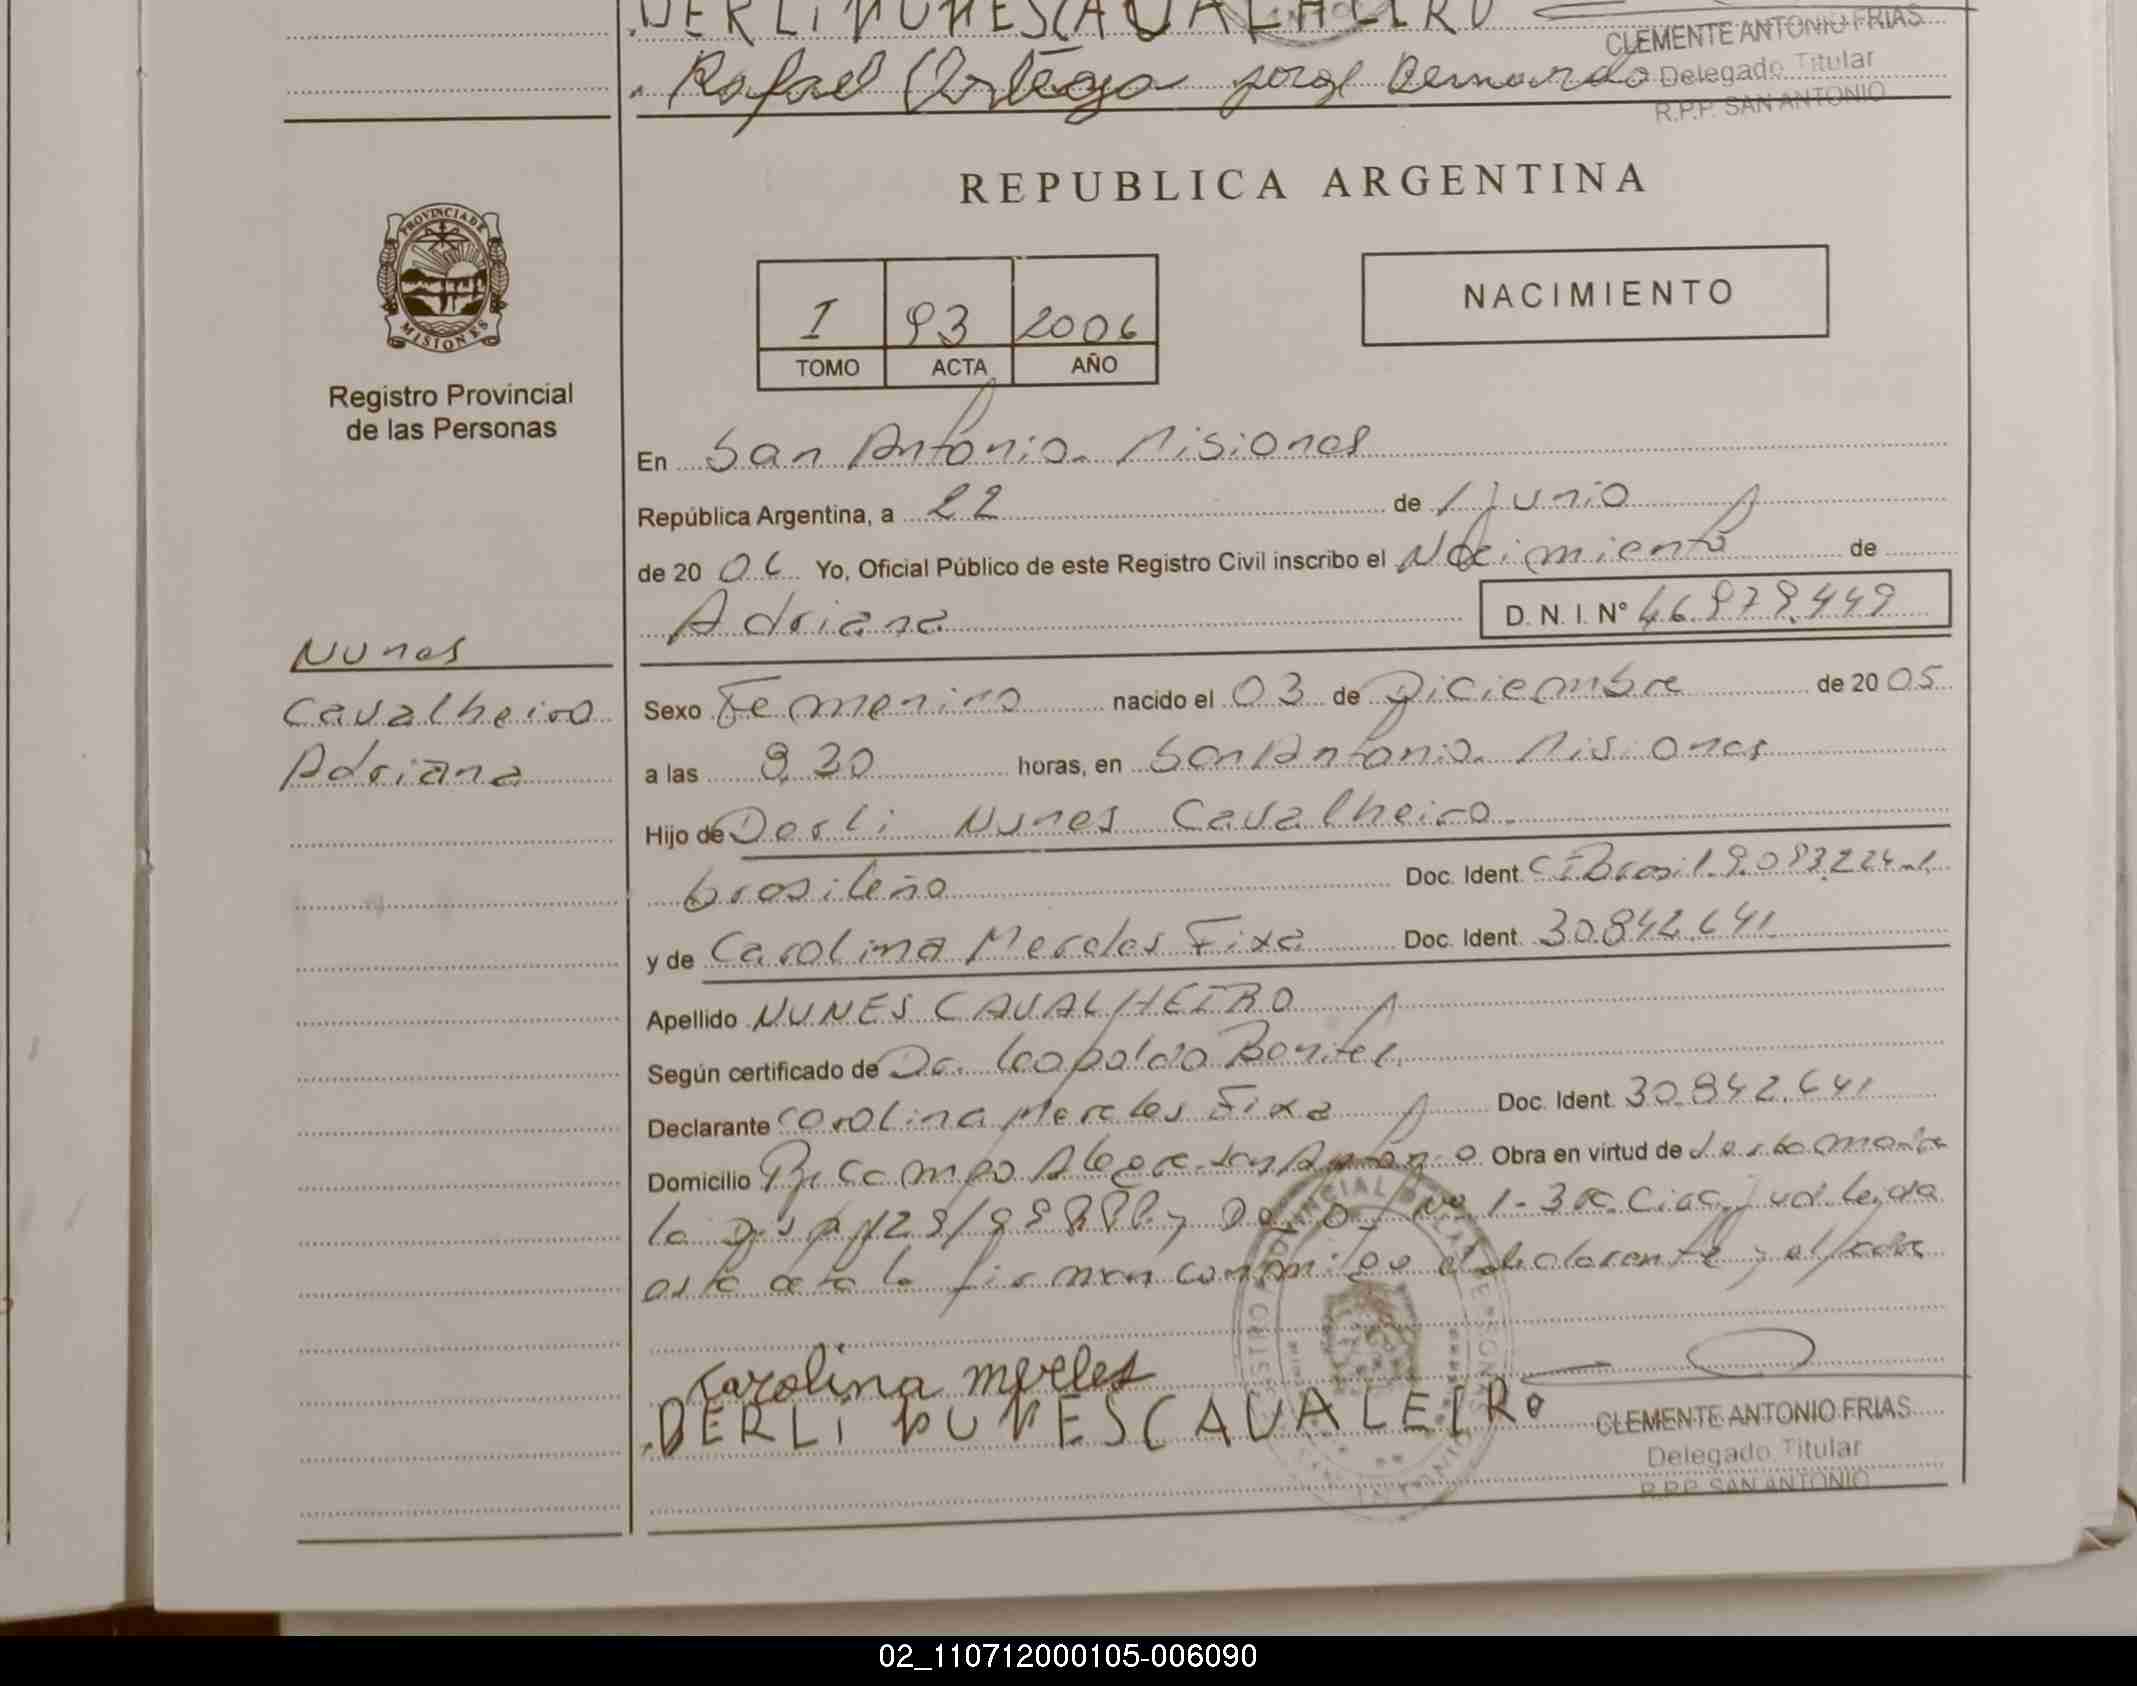 DERLI NUNES CAVALHEIRO
Rafael Ortega Jorge Bernardo
CLEMENTE ANTONIO FRIAS
Delegado Titular
R.P.P. SAN ANTONIO
REPUBLICA ARGENTINA
PROVINCIA DE MISIONES
Registro Provincial
de las Personas
I 93 2006
TOMO ACTA AÑO
NACIMIENTO
En San Antonio. Misiones
República Argentina, a 22 de Junio
de 20 06 Yo, Oficial Público de este Registro Civil inscribo el Nacimiento de
Adriana D. N. I. N° 46.979.449
Nunes
Cavalheiro
Adriana
Sexo Femenino nacido el 03 de Diciembre de 20 05
a las 9,30 horas, en San Antonio. Misiones
Hijo de Derli Nunes Cavalheiro.
brasileño Doc. Ident. CI Brasil 9.093.224
y de Carolina Mereles Fixa Doc. Ident. 30.842.641
Apellido NUNES CAVALHEIRO
Según certificado de Dr. Leopoldo Benitez
Declarante Carolina Mereles Fixa Doc. Ident. 30.842.641
Domicilio Pje Campo Alegre San Antonio Obra en virtud de
la Disp 128/98 RPP y No 1-3 leida
esta acta la firman conmigo el declarante y el padre
Carolina mereles
DERLI NUNES CAVALEIRO
CLEMENTE ANTONIO FRIAS
Delegado Titular
R.P.P. SAN ANTONIO
02_110712000105-006090